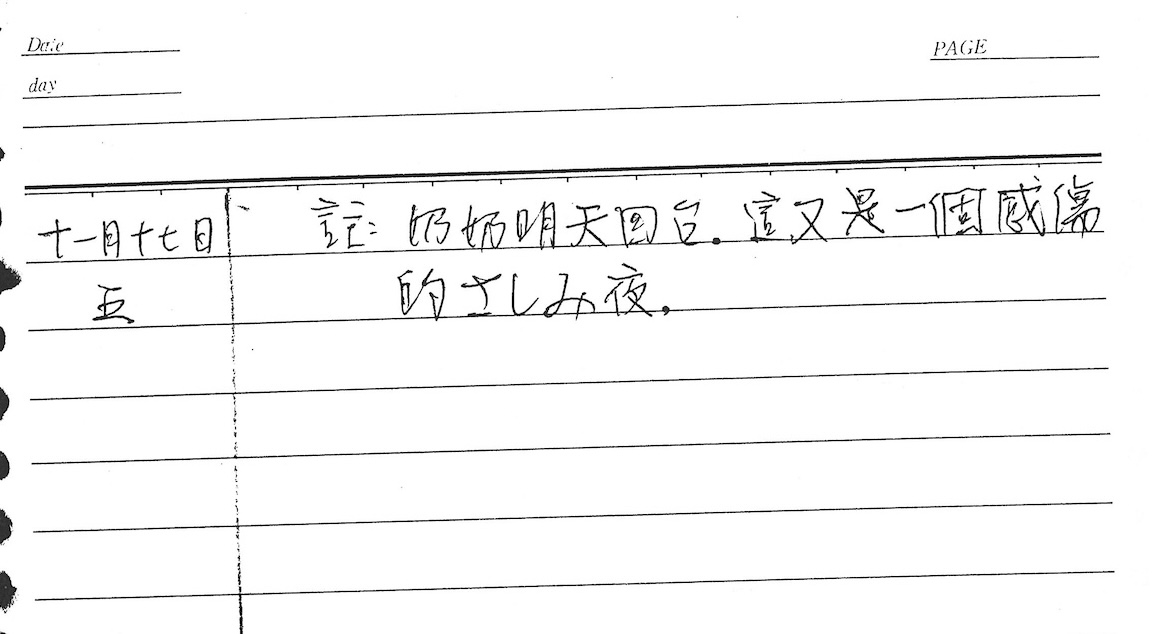 Date
PAGE
day
十一月十七日
註: 奶奶明天回台. 這又是一個感傷
五
的さしみ夜.